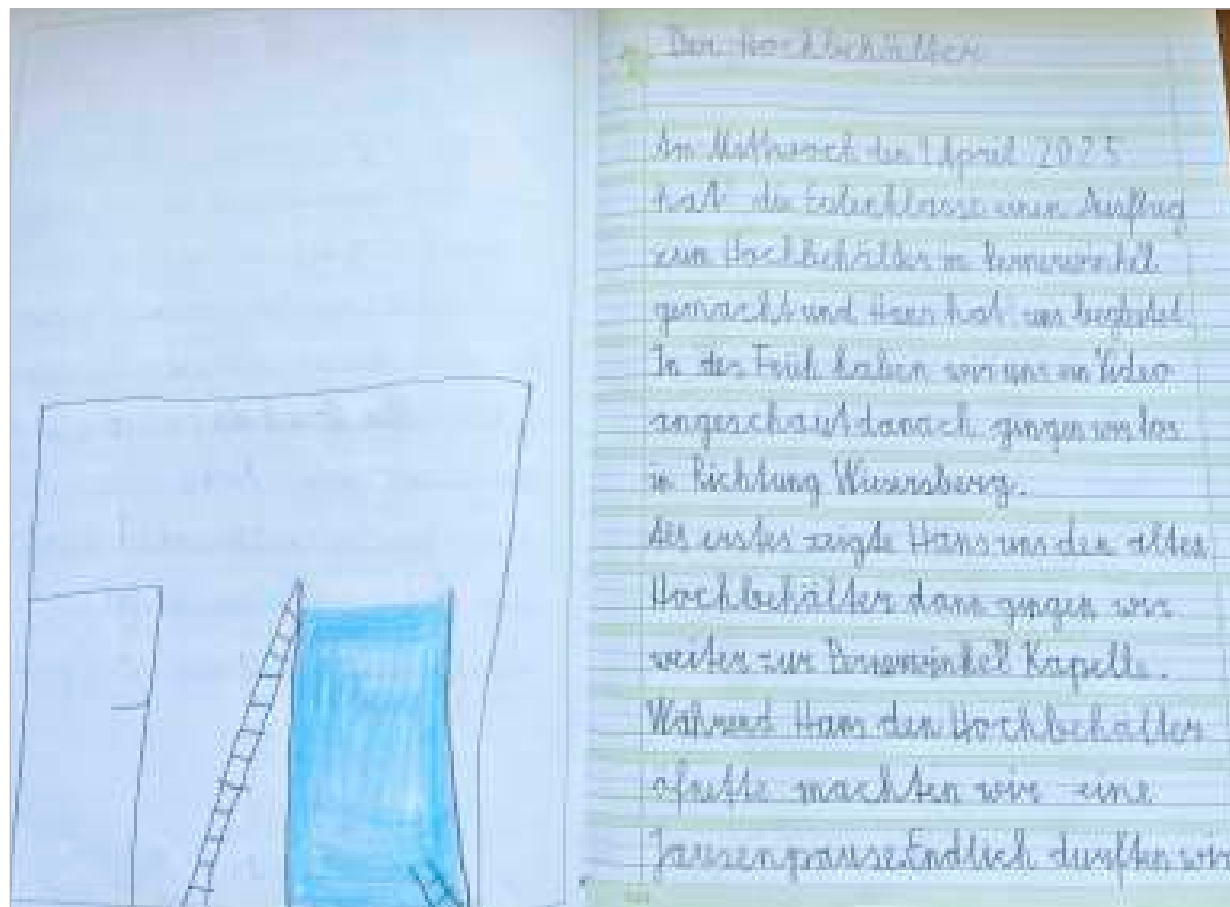 Der Hochbehälter
Am Mittwoch den 1 April 2025
hat die Eulenklasse einen Ausflug
zum Hochbehälter in Pernerwinkel
gemacht und Hans hat uns begleitet.
In der Früh haben wir uns ein Video
angeschaut danach gingen wir los
in Richtung Wiesersberg.
Als erstes zeigte Hans uns den alten
Hochbehälter dann gingen wir
weiter zur Kapelle.
Während Hans den Hochbehälter
öfnette machten wir eine
Jausenpause. Endlich durften wir